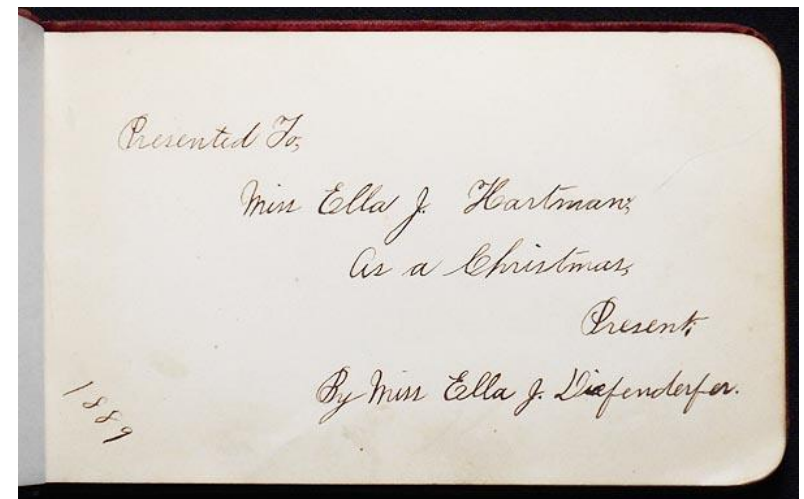 Presented To,
Miss Ella J. Hartman,
As a Christmas,
Present,
By Miss Ella J. Diefenderfer.
1889